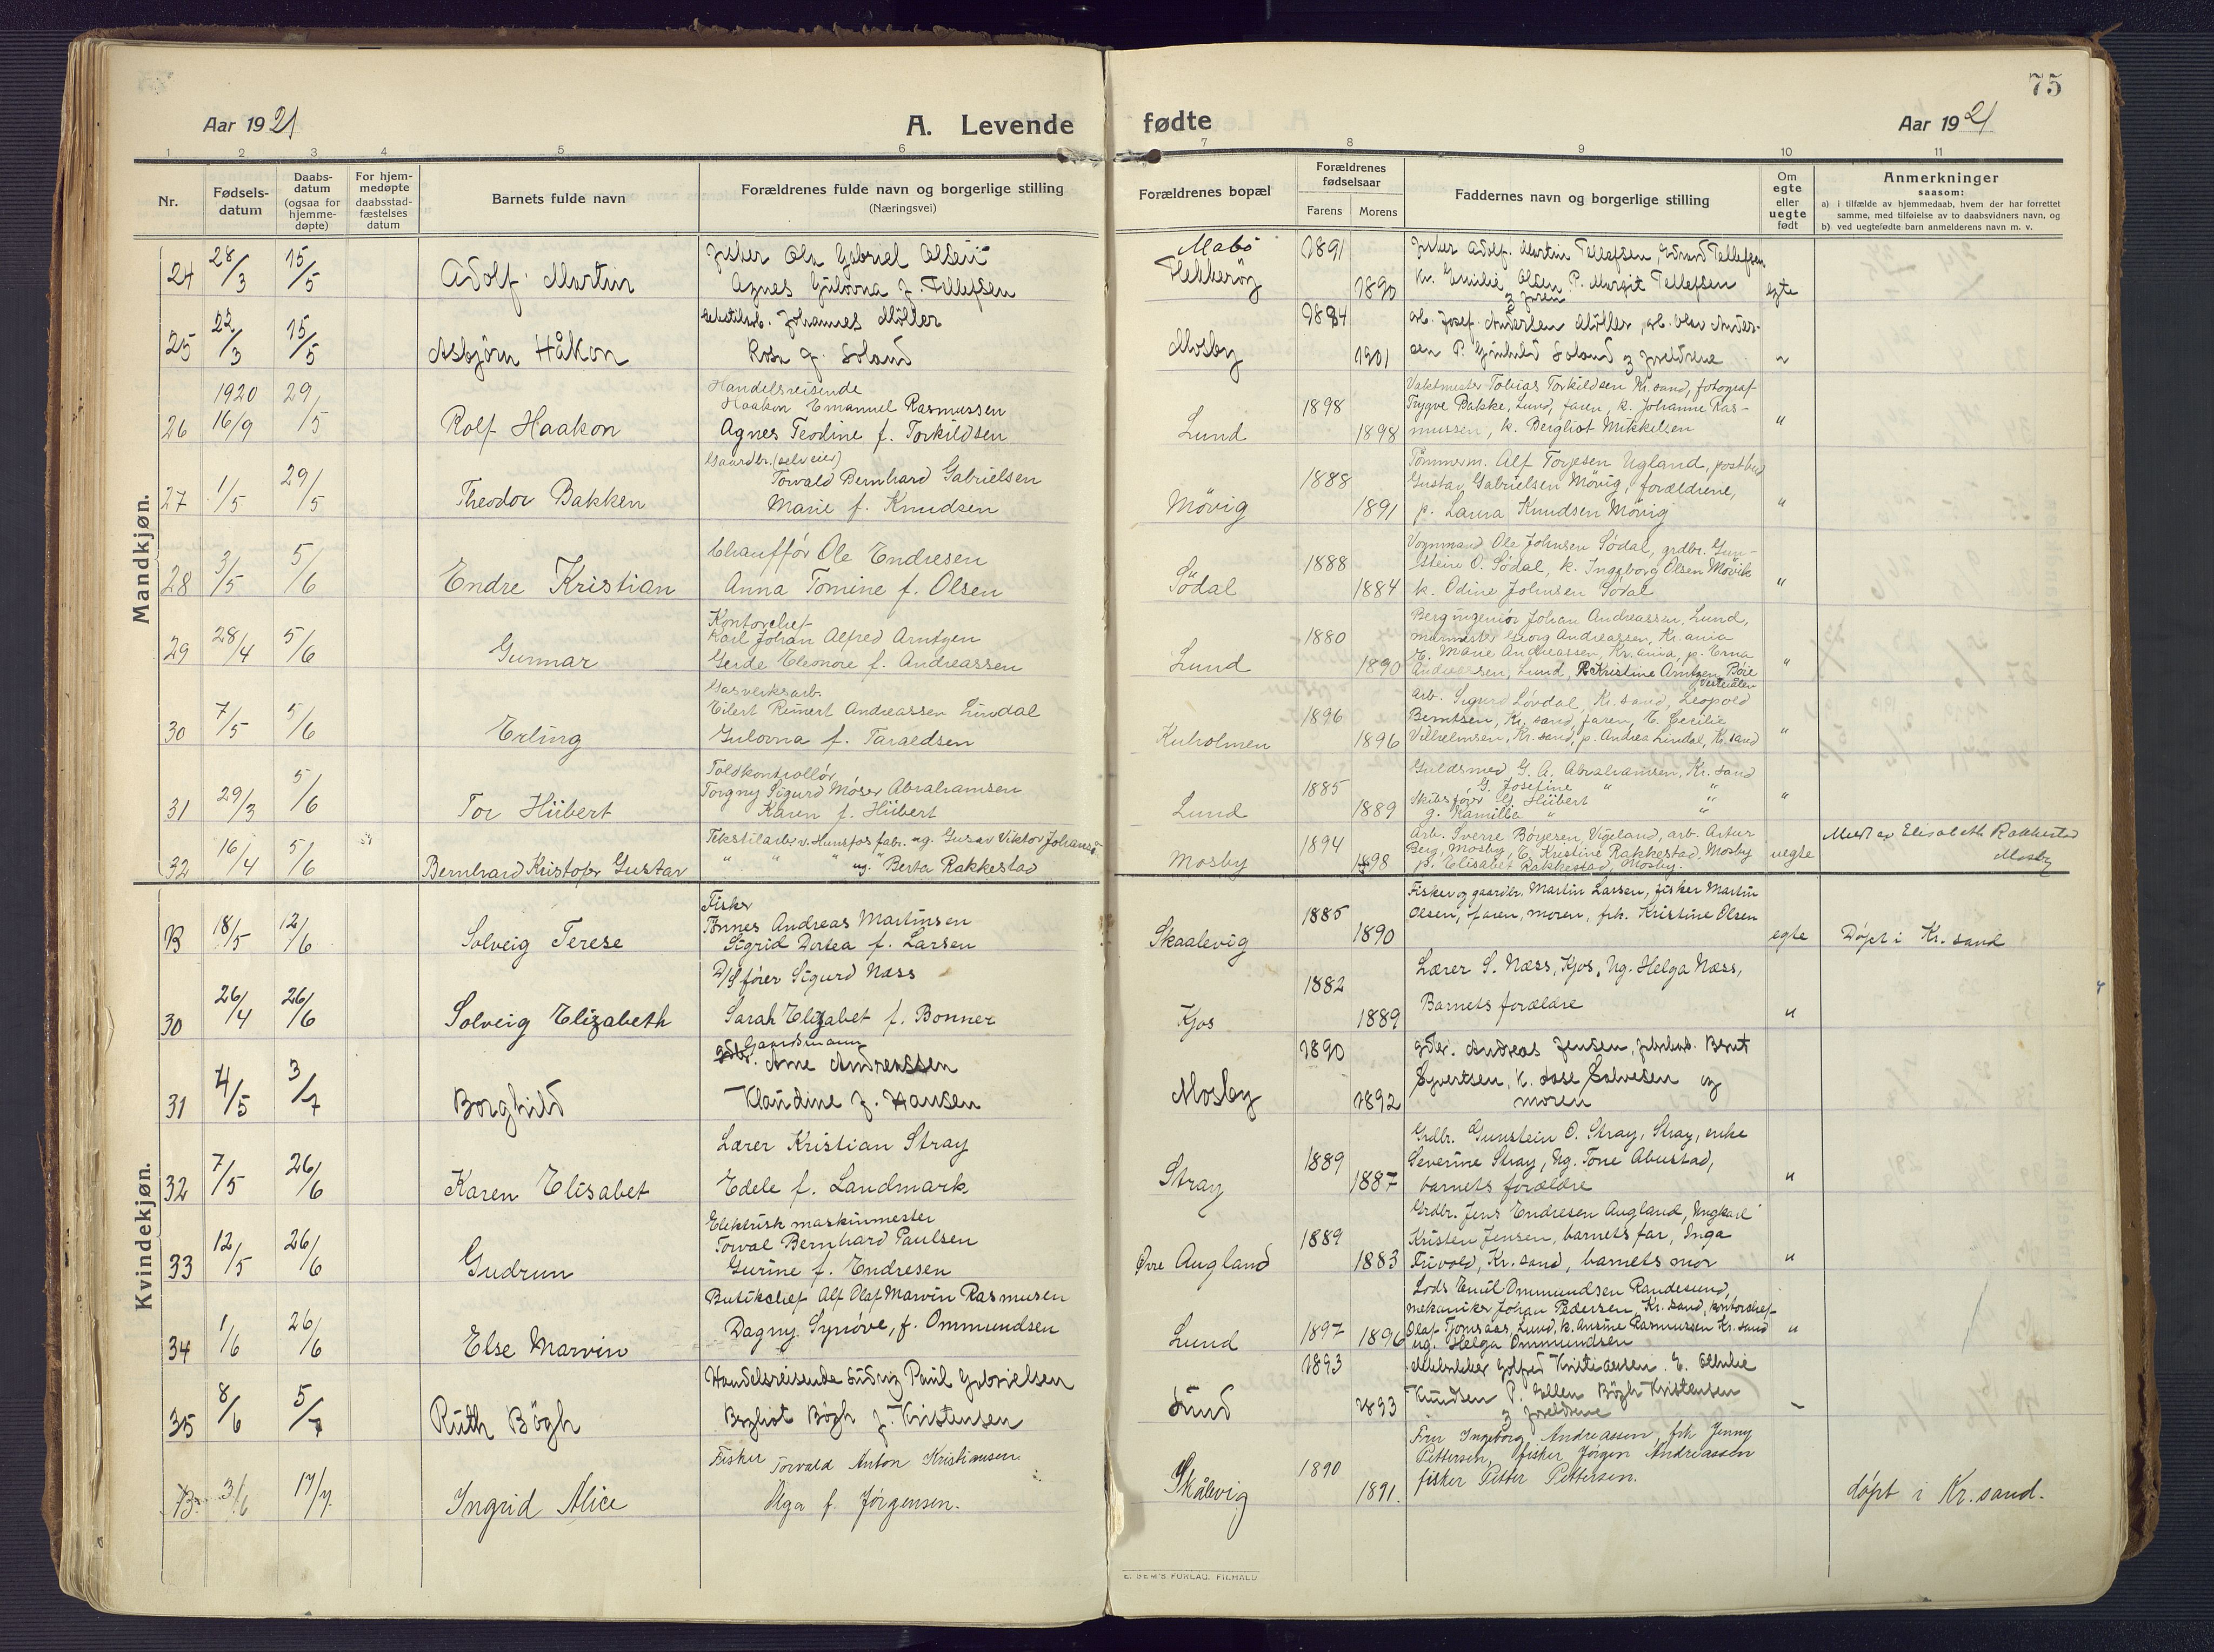 75
Aar 1921
A. Levende fødte
Aar 1921
1 2 3 4 5 6 7 8 9 10 11
Nr.
Fødsels-
datum
Daabs-
datum
(ogsaa for
hjemme-
døpte)
For hjem-
medøpte
daabsstad-
fæstelses
datum
Barnets fulde navn
Forældrenes fulde navn og borgerlige stilling
(Næringsvei)
Forældrenes bopæl
Forældrenes
fødselsaar
Farens Morens
Faddernes navn og borgerlige stilling
Om
egte
eller
uegte
født
Anmerkninger
saasom:
a) i tilfælde av hjemmedaab, hvem der har forrettet
samme, med tilføielse av to daabsvidners navn, og
b) ved uegtefødte barn anmelderens navn m. v.
Mandkjøn.
24 28/3 15/5 Adolf Martin
Fisker Ola Gabriel Olsen
Agnes Gulovna f. Tellefsen
Flekkerøy
1891 1890
Fisker Adolf Martin Tellefsen, Edvard Tellefsen
K. Emilie Olsen P. Margit Tellefsen
egte
25 22/3 15/5 Asbjörn Håkon
Johannes Möller
Rosa f. Soland
Mosby
1884 1901
arb. Josef Andersen Möller, arb. Olav Anders-
sen P. Gunhild Soland og forældrene
"
26 1920 16/9 29/5 Rolf Haakon
Handelsreisende
Haakon Emanuel Rasmussen
Agnes Teodine f. Torkildsen
Lund
1898 1898
Vaktmester Tobias Torkildsen Kr.sand, fotograf
Trygve Bakke, Lund, faren, k. Johanne Ras-
mussen, k. Bergliot Mikkelsen
"
27 1/5 29/5 Theodor Bakken
Gaardbr. (selveier)
Torvald Bernhard Gabrielsen
Marie f. Knudsen
Mövig
1888 1891
Tømmerm. Alf Torjesen Ugland, postbud
Gustav Gabrielsen Mövig, forældrene,
p. Laura Knudsen Mövig
"
28 3/5 5/6 Endre Kristian
Chauffør Ole Endresen
Anna Tomine f. Olsen
Södal
1888 1884
Vognmand Ole Johnsen Södal, grdbr. Gun-
stein O. Södal, k. Ingeborg Olsen Møvik
k. Odine Johnsen Södal
"
29 28/4 5/6 Gunnar
Kontorchef
Karl Johan Alfred Arntzen
Gerde Eleonore f. Andreassen
Lund
1880 1890
Bergingeniør Johan Andreassen, Lund,
murmester Georg Andreassen, Kr.ania
E. Marie Andreassen, Kr.ania, p. Erna
Andreassen, Lund, Kristine Arntzen Bøie
"
30 7/5 5/6 Erling
Gasverksarb.
Eilert Reinert Andreassen Lindal
Gulovna f. Taraldsen
Kuholmen
1896 1896
Arb. Sigurd Løvdal, Kr.sand, Leopold
Berntsen, Kr.sand, faren, E. Cecilie
Vilhelmsen, Kr.sand, p. Andrea Lindal, Kr.sand
"
31 29/3 5/6 Tor Hübert
Toldkontrollør
Torgny Sigurd Moser Abrahamsen
Karen f. Hübert
Lund
1885 1889
Guldsmed G. A. Abrahamsen, Kr.sand
G. Josefine " "
Skibsfører G. Hübert "
g. Kamilla " "
"
32 16/4 5/6 Bernhard Kristofer Gustav
Tekstilarb. v. Hunsfos fabr. ug. Gustav Viktor Johanss.
" " " ug. Berta Rakkestad
Mosby
1894 1898
Arb. Sverre Bøyesen, Vigeland, arb. Artur
Berg, Mosby, E. Kristine Rakkestad, Mosby
p. Elisabet Rakkestad, Mosby.
uegte
Meldt av Elisabeth Rakkestad
Mosby
Kvindekjøn.
B 18/5 12/6 Solveig Terese
Fisker
Tønnes Andreas Martinsen
Sigrid Dortea f. Larsen
Skaalevig
1885 1890
Fisker og gaardbr. Martin Larsen, fisker Martin
Olsen, faren, moren, frk. Kristine Olsen
egte
Døpt i Kr. sand
30 26/4 26/6 Solveig Elizabeth
D/S fører Sigurd Næss
Sarah Elizabet f. Bonner
Kjos
1882 1889
Lærer S. Næss, Kjos, Ug. Helga Næss,
Barnets forældre
"
31 4/5 3/7 Borghild
Gaardmann
Arne Andreassen
Klaudine f. Hansen
Mosby
1890 1892
gdbr. Andreas Jensen, Bernt
Syvertsen, K. Aase Salvesen og
moren
32 7/5 26/6 Karen Elisabet
Lærer Kristian Stray
Edele f. Landmark
Stray
1889 1887
Grdbr. Gunstein O. Stray, Stray, enke
Severine Stray, Ug. Tone Abustad,
barnets forældre
"
33 12/5 26/6 Gudrun
Elektrisk maskinmester
Torval Bernhard Paulsen
Gurine f. Endresen
Øvre Augland
1889 1883
Grdbr. Jens Endresen Augland, Ungkarl
Kristen Jensen, barnets far, Inga
Trivold, Kr. sand, barnets mor
"
34 1/6 26/6 Else Marvin
Butikchef Alf Olaf Marvin Rasmusen
Dagny Synøve, f. Ommundsen
Lund
1897 1896
Lods Emil Ommundsen Randesund,
mekaniker Johan Pedersen, Kr.sand, kontorchef
Olaf Tjomsaas, Lund, k. Ansine Rasmussen Kr.sand
ug. Helga Ommundsen
"
35 8/6 5/7 Ruth Bögh
Handelsreisende Ludvig Paul Gabrielsen
Bergliot Bögh f. Kristensen
Lund
1893 1893
Kristiansen. E. Emilie
Knudsen P. Ellen Bögh Kristensen
og forældrene
B. 3/6 17/7 Ingrid Alice
Fisker Torvald Anton Kristiansen
Olga f. Jörgensen.
Skålevig
1890 1891.
Fru Ingeborg Andreassen, frk Jenny
Pettersen, fisker Jörgen Andreassen
fisker Petter Pettersen.
døpt i Kr. sand.
E. SEM'S FORLAG. FR.HALD